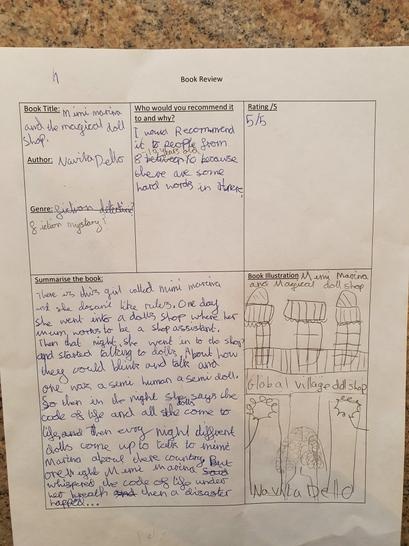 Book Review
Book Title: Mimi marina
and the magical doll
shop.
Author: Navita Dello
Genre: fiction
fiction mystery!
Who would you recommend it
to and why?
I would Recommend
it to people from
8 10 because
there are some
hard words in there.
Rating /5
5/5
Summarise the book:
There is this girl called mimi marina
and she doesnt like rules. One day
she went into a dolls shop where her
mum, works to be a shop assistant.
Then that night she went in to do shop
and started talking to dolls. About how
they could blink and talk and
one was a semi human a semi doll.
So then in the night she says the
code of life and all the dolls come to
life, and then every night different
dolls come up to talk to mimi
Marina about there country. But
one night Mimi marina said
whispered the code of life under
her breath and then a disaster
happend...
Book Illustration Mimi Marina
and Magical doll shop
Global village doll shop
Navita Dello